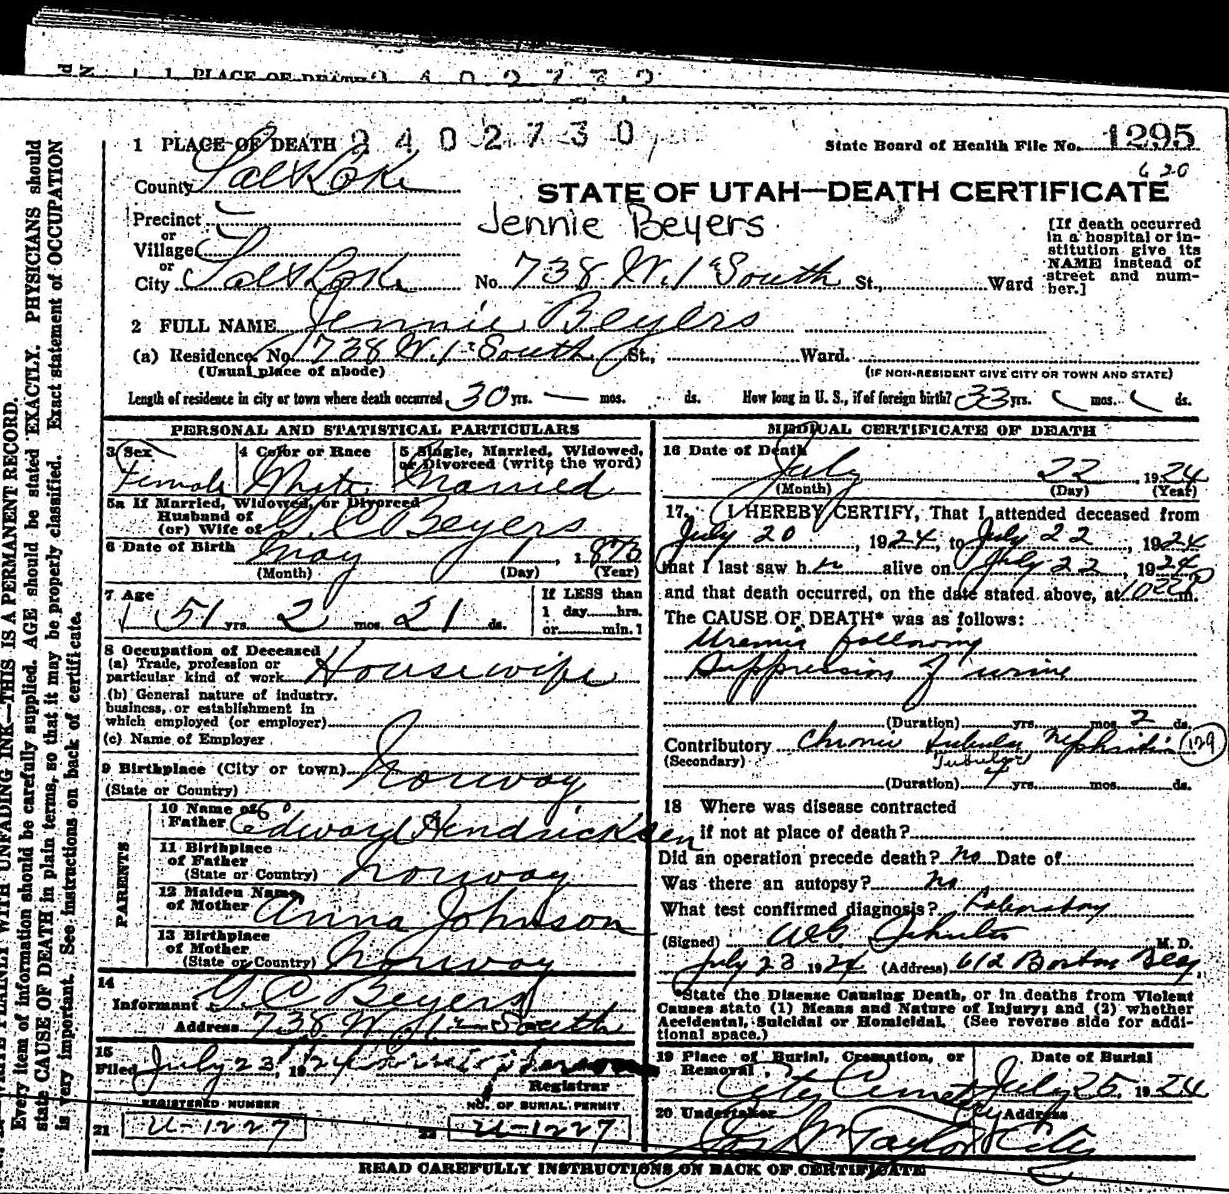 1 PLACE OF DEATH 2 4 0 2 7 3 0
1 PLACE OF DEATH 2402730
State Board of Health File No. 1295
620
County Salt Lake
STATE OF UTAH—DEATH CERTIFICATE
Precinct
Jennie Beyers
or
Village
or
City Salt Lake No. 738 W. 1st South St., Ward
[If death occurred
in a hospital or in-
stitution give its
NAME instead of
street and num-
ber.]
2 FULL NAME Jennie Beyers
(a) Residence. No. 738 W. 1st South St., Ward.
(Usual place of abode) (IF NON-RESIDENT GIVE CITY OR TOWN AND STATE)
Length of residence in city or town where death occurred 30 yrs. — mos. ds. How long in U. S., if of foreign birth? 33 yrs. mos. ds.
PERSONAL AND STATISTICAL PARTICULARS
3 Sex 4 Color or Race 5 Single, Married, Widowed,
or Divorced (write the word)
Female White Married
5a If Married, Widowed, or Divorced
Husband of
(or) Wife of G. C. Beyers
6 Date of Birth May 1, 1873
(Month) (Day) (Year)
7 Age 51 yrs. 2 mos. 21 ds.
If LESS than
1 day hrs.
or min.
8 Occupation of Deceased
(a) Trade, profession or
particular kind of work Housewife
(b) General nature of industry,
business, or establishment in
which employed (or employer)
(c) Name of Employer
9 Birthplace (City or town)
(State or Country) Norway
PARENTS
10 Name of
Father Edward Hendricksen
11 Birthplace
of Father
(State or Country) Norway
12 Maiden Name
of Mother Anna Johnson
13 Birthplace
of Mother
(State or Country) Norway
14
Informant G. C. Beyers
Address 738 W. 1st South
15
Filed July 23, 1924
Registrar
REGISTERED NUMBER NO. OF BURIAL PERMIT
21 U-1227 22 U-1227
MEDICAL CERTIFICATE OF DEATH
16 Date of Death
July 22, 1924
(Month) (Day) (Year)
17. I HEREBY CERTIFY, That I attended deceased from
July 20, 1924, to July 22, 1924
that I last saw her alive on July 22, 1924
and that death occurred, on the date stated above, at m.
The CAUSE OF DEATH* was as follows:
Uremia following
Suppression of urine
(Duration) yrs. mos. 2 ds.
Contributory Chronic tubular Nephritis 129
(Secondary) Tubular
(Duration) yrs. mos. ds.
18 Where was disease contracted
if not at place of death?
Did an operation precede death? No Date of
Was there an autopsy? No
What test confirmed diagnosis? Laboratory
(Signed) M. D.
July 23 1924 (Address) 612 Boston Bldg
*State the Disease Causing Death, or in deaths from Violent
Causes state (1) Means and Nature of Injury; and (2) whether
Accidental, Suicidal or Homicidal. (See reverse side for addi-
tional space.)
19 Place of Burial, Cremation, or Date of Burial
Removal City Cemetery July 25, 1924
20 Undertaker Address
Taylor City
READ CAREFULLY INSTRUCTIONS ON BACK OF CERTIFICATE
WRITE PLAINLY WITH UNFADING INK—THIS IS A PERMANENT RECORD.
Every item of information should be carefully supplied. AGE should be stated EXACTLY. PHYSICIANS should
state CAUSE OF DEATH in plain terms, so that it may be properly classified. Exact statement of OCCUPATION
is very important. See instructions on back of certificate.